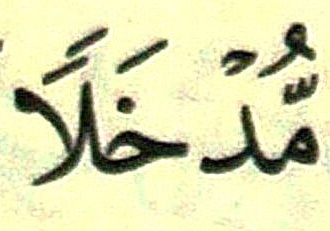 مُّدْخَلًا